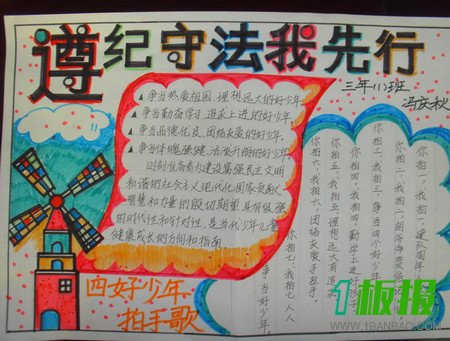 遵纪守法我先行
三年(1)班
冯庆秋
▲争当热爱祖国、理想远大的好少年
▲争当勤奋学习、追求上进的好少年
▲争当品德优良、团结友爱的好少年
▲争当体魄强健、活泼开朗的好少年
时刻准备着为建设富强民主文明
和谐的社会主义现代化国家贡献
智慧和力量的
期望具有很强
的时代性和针对性,是当代少年儿童
健康成长的方向和指南。
你拍二,我拍二,
你拍三,我拍三,争当四个好少年
你拍四,我拍四,勤学上进好
你拍五,我拍五,理想远大有
你拍六,我拍六,团结友爱手拉手,
你拍七,我拍七,人人
争当好少年。
四好少年
拍手歌
1板报
WWW.1BANBAO.COM